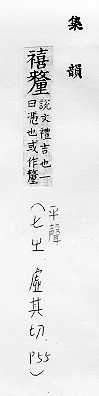 集韻
禧釐 說文禮吉也一
曰憑也或作釐
平聲
(七之.虛其切.P55)